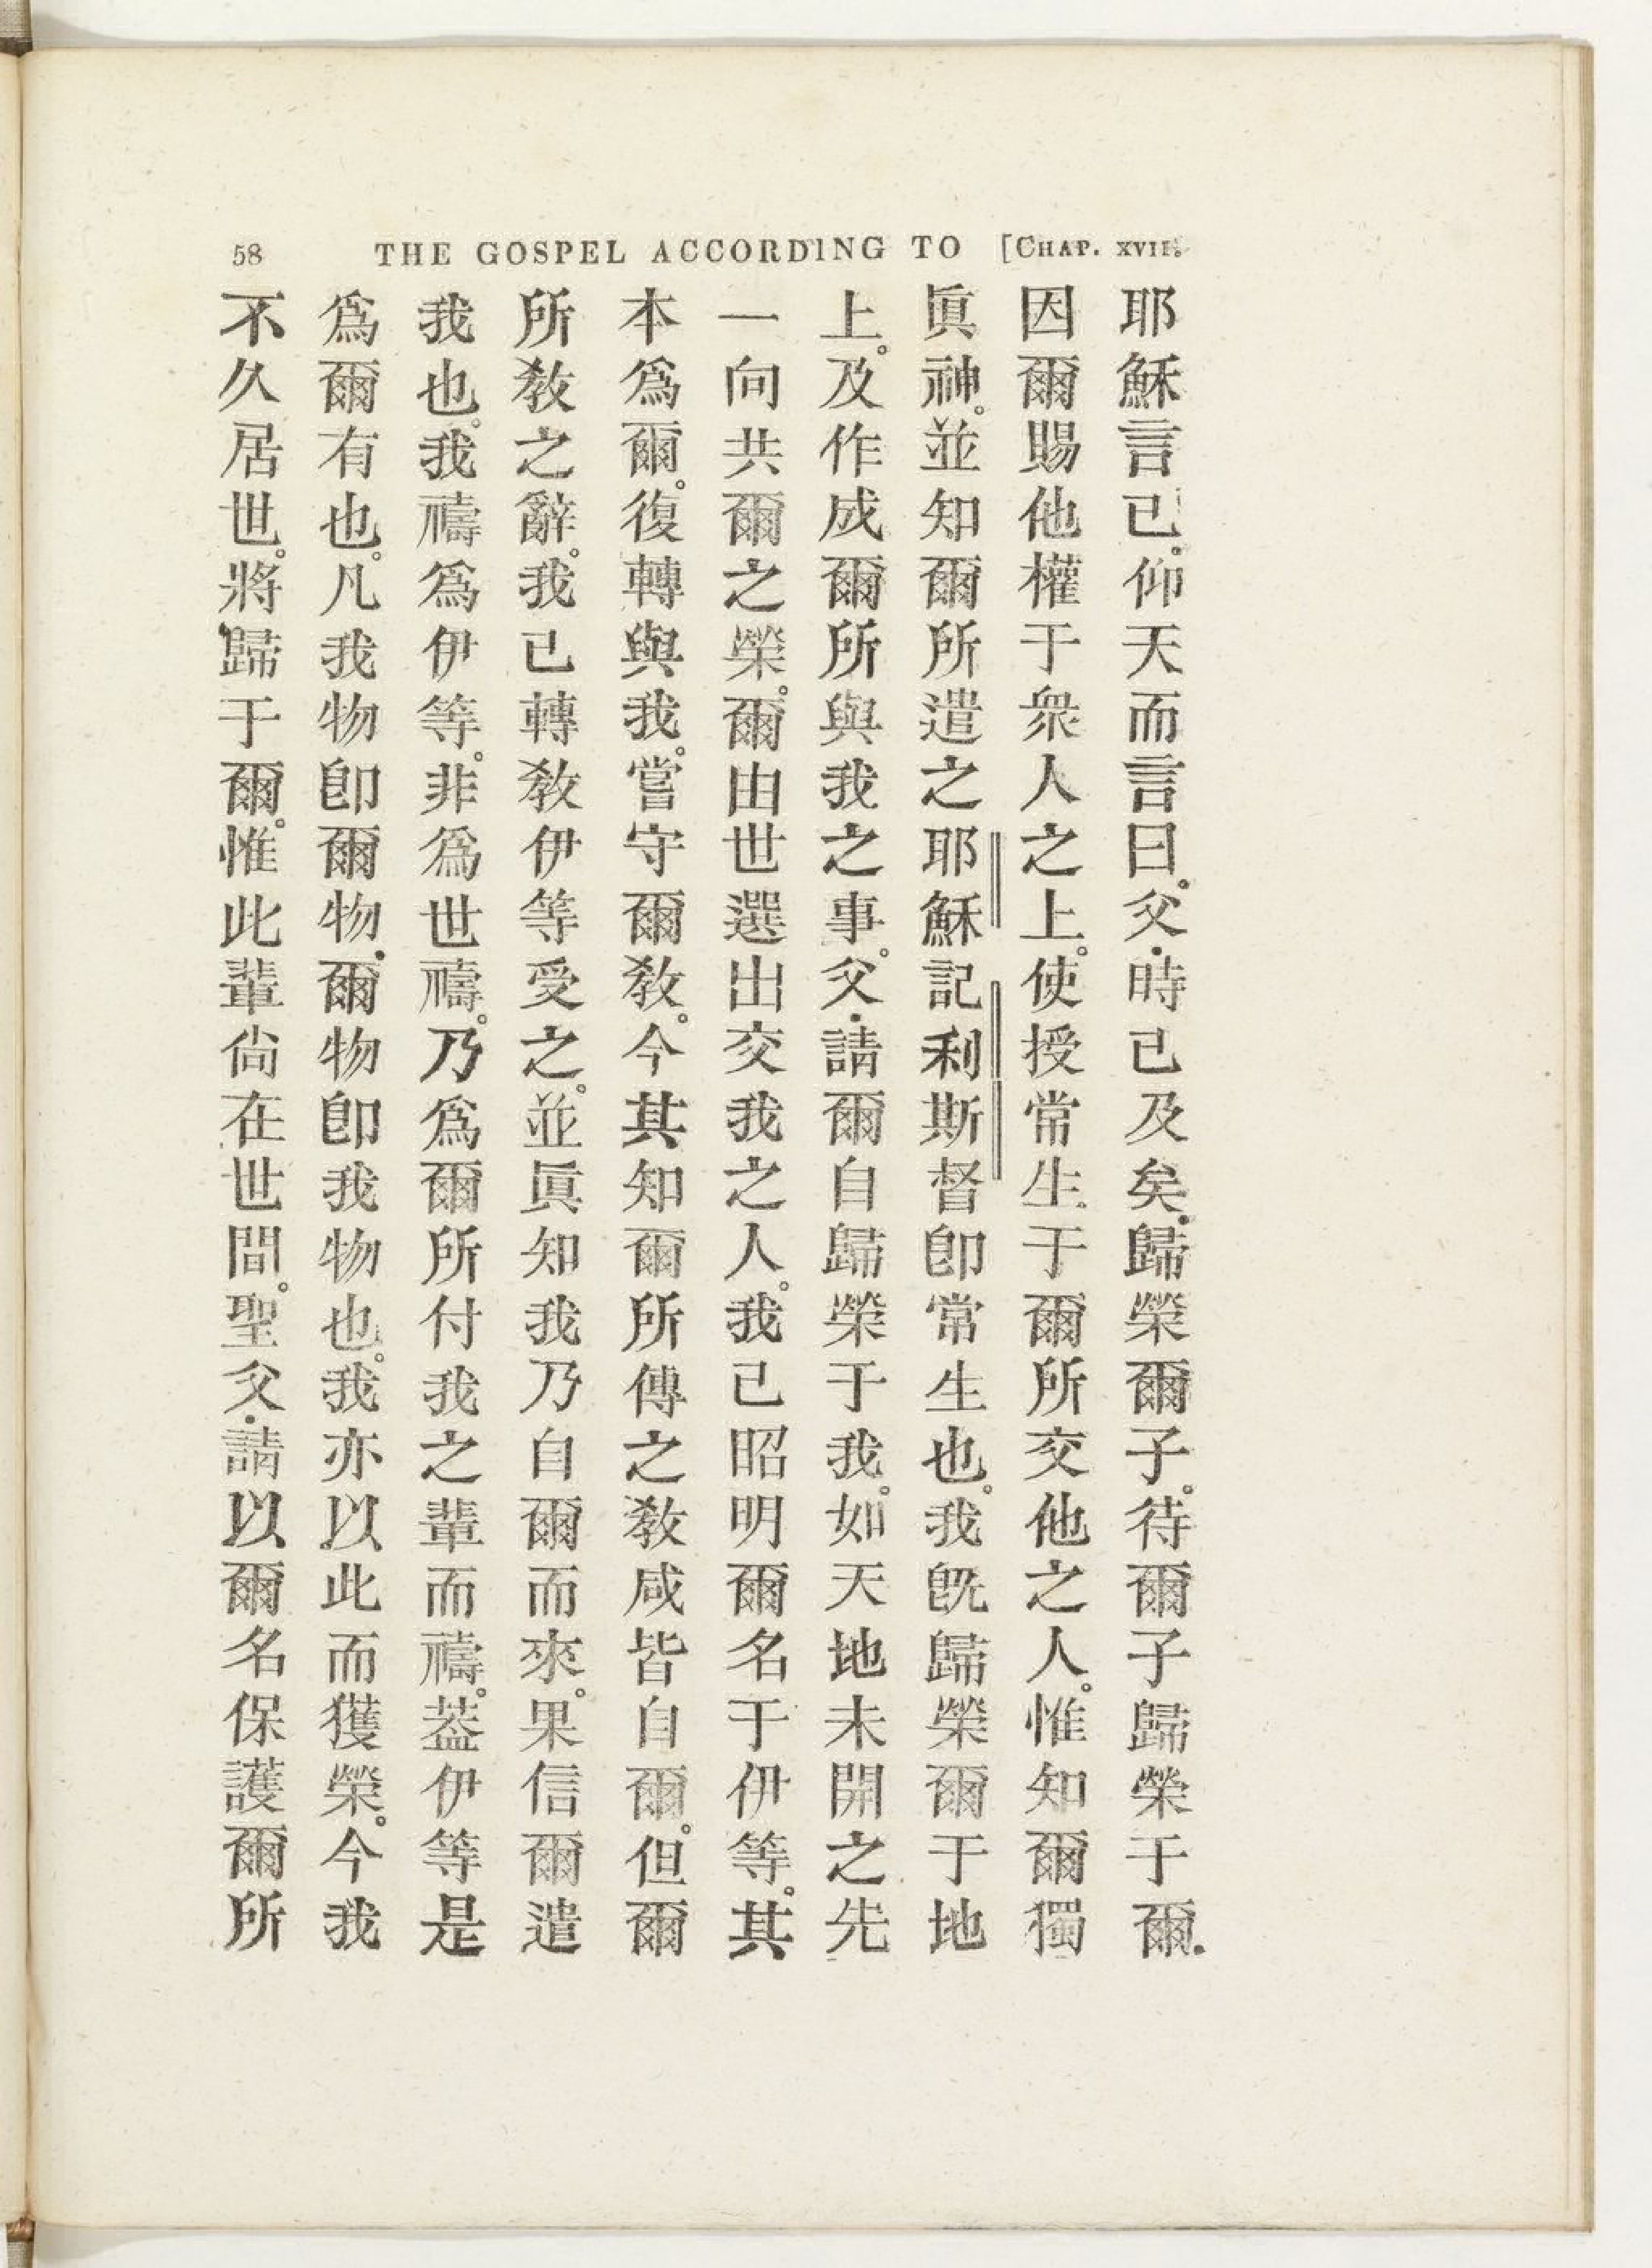 58 THE GOSPEL ACCORDING TO [CHAP. XVII.
耶穌言已。仰天而言曰。父.時已及矣.歸榮爾子。待爾子歸榮于爾.
因爾賜他權于衆人之上。使授常生于爾所交他之人。惟知爾獨
眞神。並知爾所遣之耶穌記利斯督卽常生也。我旣歸榮爾于地
上。及作成爾所與我之事。父.請爾自歸榮于我。如天地未開之先
一向共爾之榮。爾由世選出交我之人。我已昭明爾名于伊等。其
本爲爾。復轉與我。嘗守爾教。今其知爾所傳之教咸皆自爾。但爾
所教之辭。我已轉教伊等受之。並眞知我乃自爾而來。果信爾遣
我也。我禱爲伊等。非爲世禱。乃爲爾所付我之輩而禱。葢伊等是
爲爾有也。凡我物卽爾物.爾物卽我物也。我亦以此而獲榮。今我
不久居世。將歸于爾。惟此輩尙在世間。聖父.請以爾名保護爾所